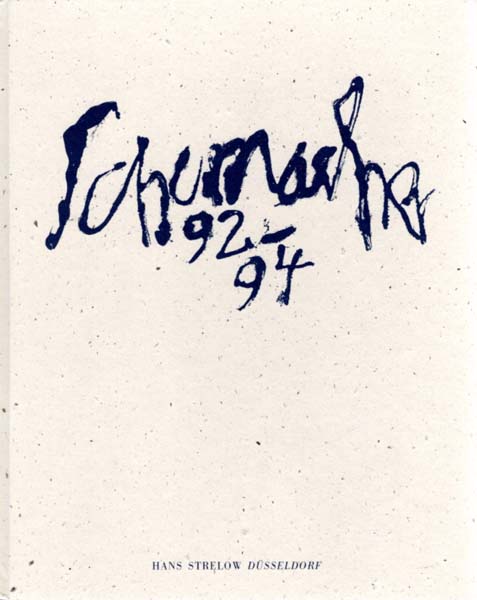 Schumacher
92–
94
HANS STRELOW DÜSSELDORF